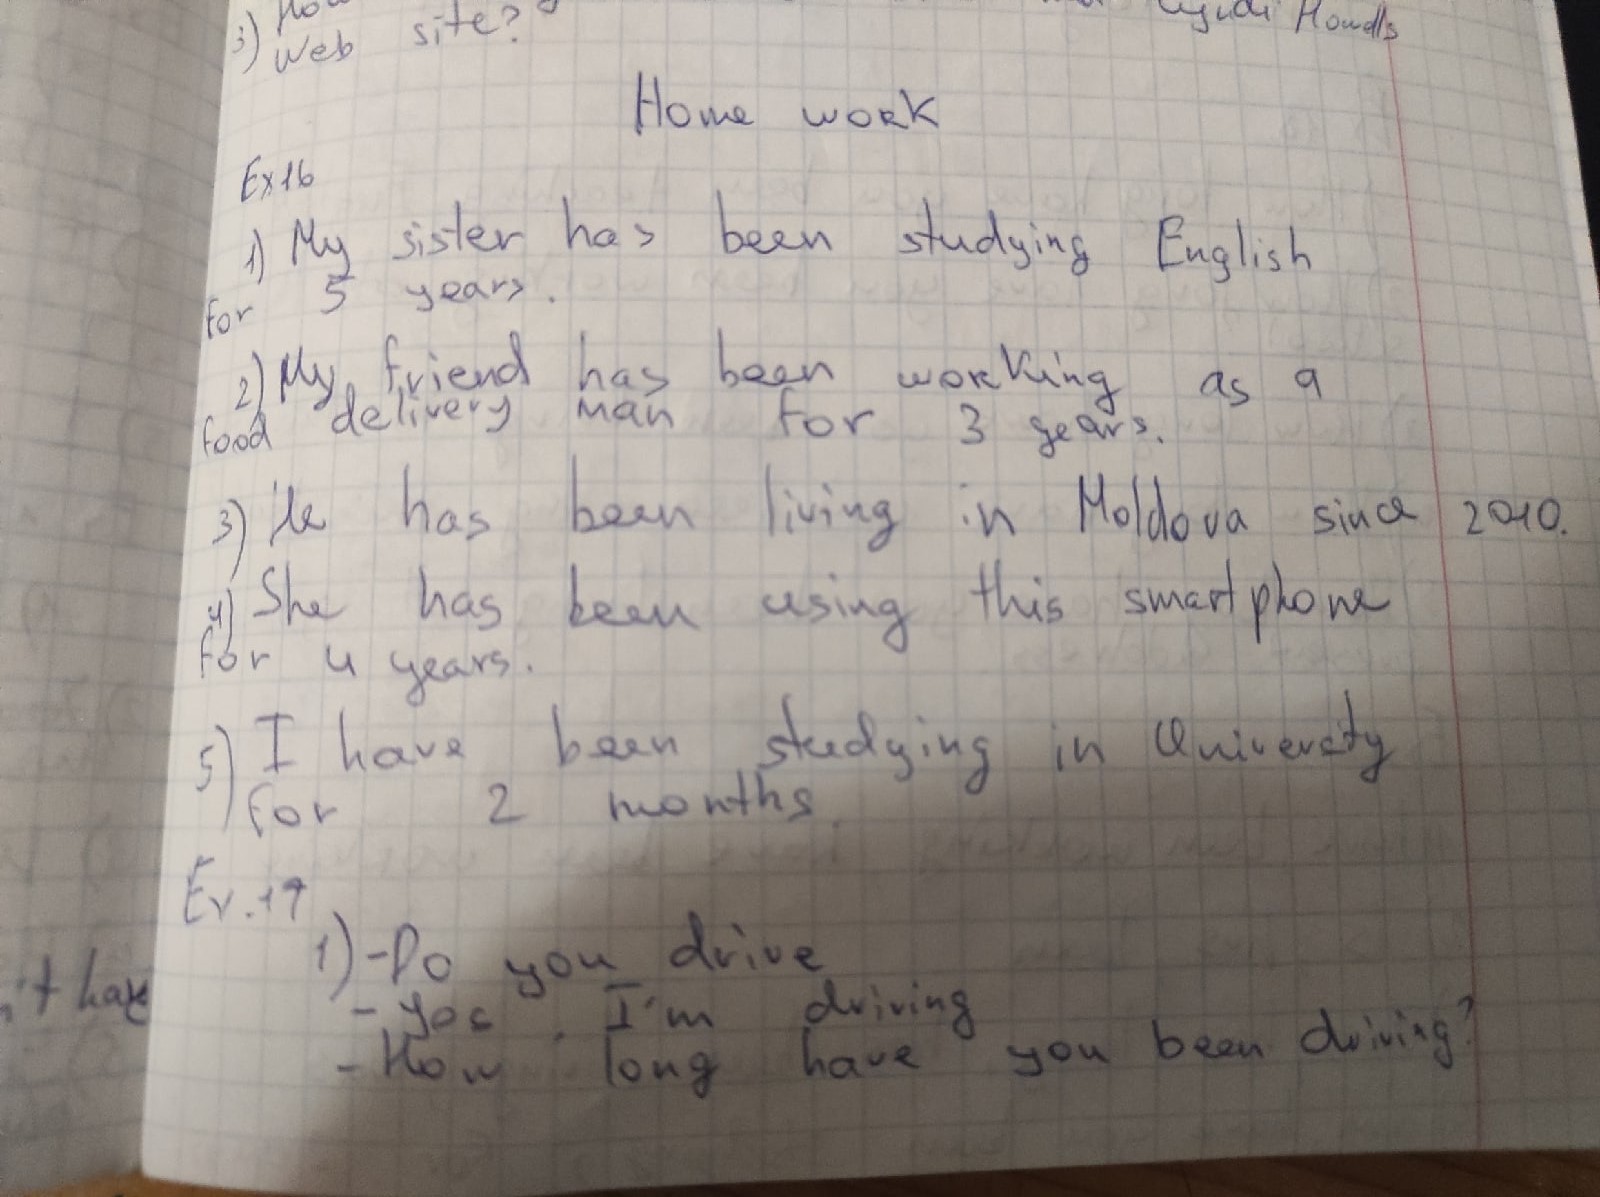 3) How
web site? Howells
Home work
Ex16
1) My sister has been studying English
for 5 years.
2) My friend has been working as a
food delivery man for 3 years.
3) He has been living in Moldova since 2010.
4) She has been using this smartphone
for 4 years.
5) I have been studying in Univercty
for 2 months.
Ex.17
1) - Do you drive
- Yes. I'm driving
- How long have you been driving?
't have